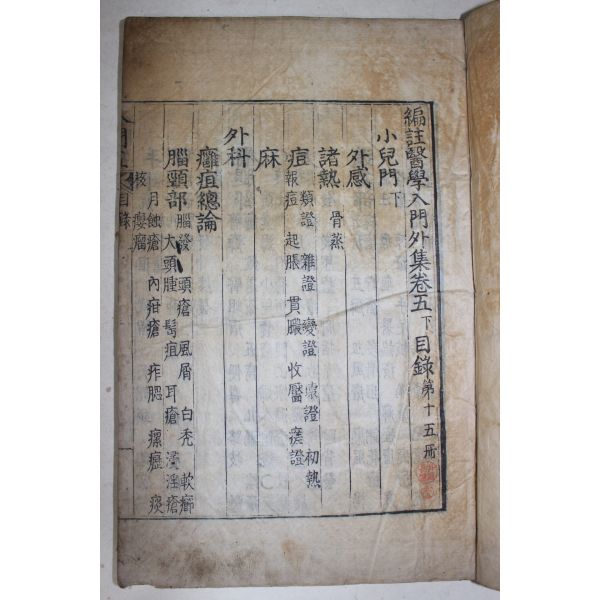 編註醫學入門外集卷五下目錄 第十五冊
小兒門下
外感
諸熱 骨蒸
痘 類證 雜證 變證 壞證 初熱
報痘 起脹 貫膿 收靨 痘證
麻
外科
癰疽總論
腦頸部 腦發 頭瘡 風屑 白禿 軟癤
大頭腫 髩疽 耳瘡 浸淫瘡
月蝕瘡 內疳瘡 痄腮 瘰癧 痰
核 癭瘤